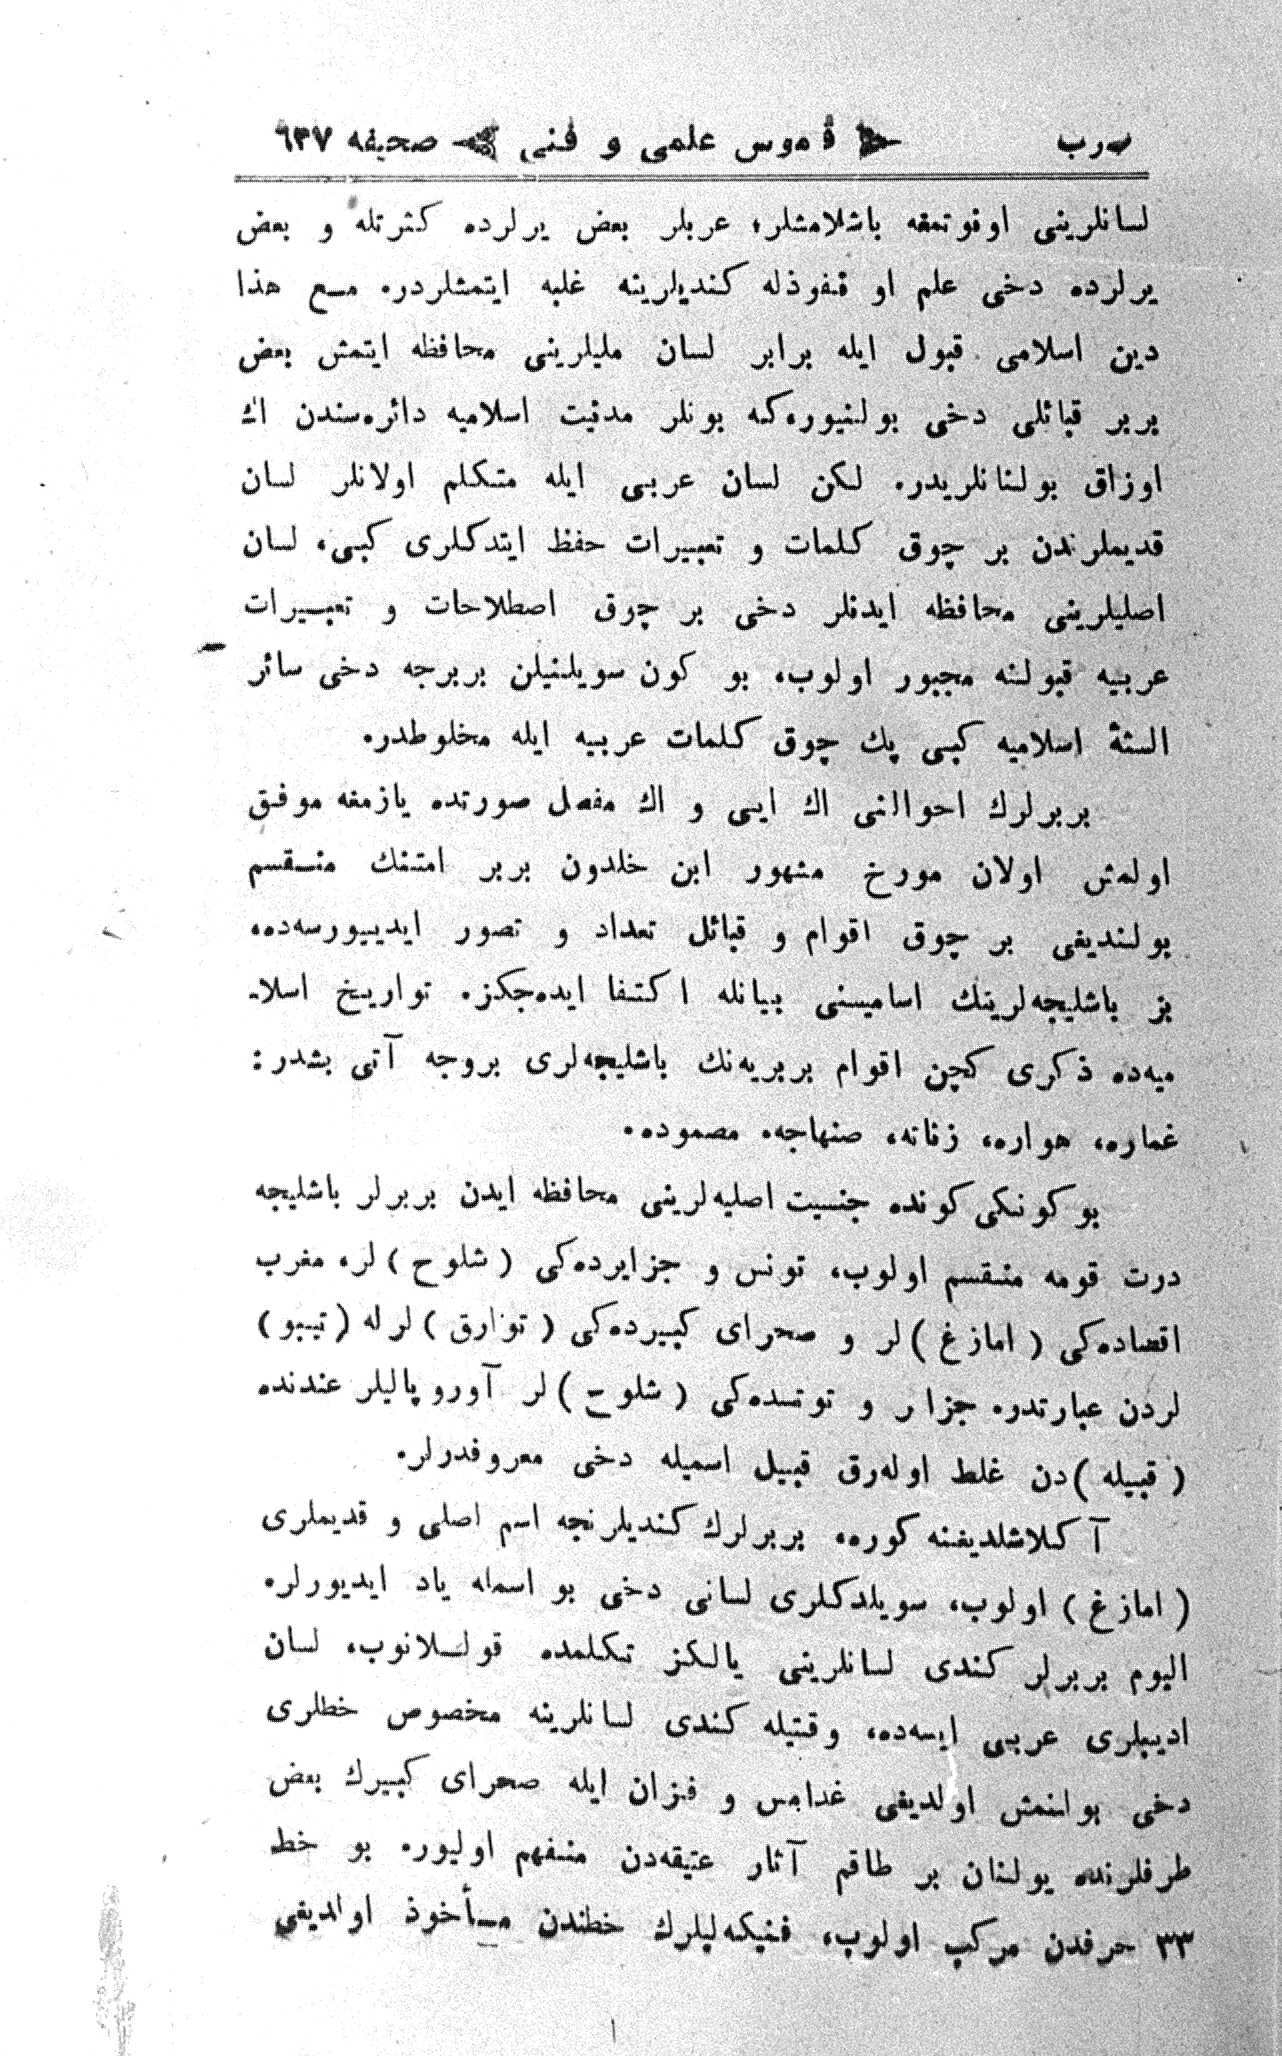 برب قاموس علمی و فنی صحیفه ٦٣٧
لسانلرینی اوقوتمغه باشلامشلر؛ عربلر بعض یرلرده کثرتله و بعض
یرلرده دخی علم او نفوذله کندیلرینه غلبه ایتمشلردر. مع هذا
دین اسلامی قبول ایله برابر لسان ملیلرینی محافظه ایتمش بعض
بربر قبائلی دخی بولنیور، که بونلر مدنیت اسلامیه دائره‌سندن اك
اوزاق بولنانلریدر. لکن لسان عربی ایله متکلم اولانلر لسان
قدیملرندن بر چوق کلمات و تعبیرات حفظ ایتدکلری کبی، لسان
اصلیلرینی محافظه ایدنلر دخی بر چوق اصطلاحات و تعبیرات
عربیه قبولنه مجبور اولوب، بو کون سویلنیلن بربرجه دخی سائر
السنهٔ اسلامیه کبی پك چوق کلمات عربیه ایله مخلوطدر.
بربرلرك احوالنی اك ایی و اك مفصل صورتده یازمغه موفق
اولمش اولان مورخ مشهور ابن خلدون بربر امتنك منقسم
بولندیغی بر چوق اقوام و قبائل تعداد و تصور ایدییورسه‌ده،
بز باشلیجه‌لرینك اسامیسنی بیانله اکتفا ایده‌جکز. تواریخ اسلا-
میه‌ده ذکری کچن اقوام بربریه‌نك باشلیجه‌لری بروجه آتی بشدر:
غماره، هواره، زناته، صنهاجه، مصموده.
بوکونکی کونده جنسیت اصلیه‌لرینی محافظه ایدن بربرلر باشلیجه
درت قومه منقسم اولوب، تونس و جزایرده‌کی (شلوح)لر، مغرب
اقصاده‌کی (امازغ)لر و صحرای کبیرده‌کی (توارق)لرله (تیبو)
لردن عبارتدر. جزائر و تونسده‌کی (شلوح)لر آوروپالیلر عندنده
(قبیله)دن غلط اوله‌رق قبیل اسمیله دخی معروفدرلر.
آکلاشلدیغنه کوره، بربرلرك کندیلرنجه اسم اصلی و قدیملری
(امازغ) اولوب، سویلدکلری لسانی دخی بو اسمله یاد ایدیورلر.
الیوم بربرلر کندی لسانلرینی یالکز تکلمده قوللانوب، لسان
ادیبلری عربی ایسه‌ده، وقتیله کندی لسانلرینه مخصوص خطلری
دخی بولنمش اولدیغی غدامس و فزان ایله صحرای کبیرك بعض
طرفلرنده بولنان بر طاقم آثار عتیقه‌دن منفهم اولیور. بو خط
٣٣ حرفدن مرکب اولوب، فنیکه‌لیلرك خطندن مأخوذ اولدیغی